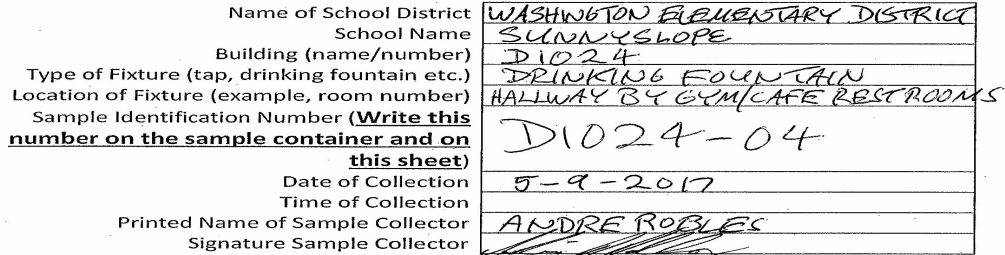 Name of School District WASHINGTON ELEMENTARY DISTRICT
School Name SUNNYSLOPE
Building (name/number) D1024
Type of Fixture (tap, drinking fountain etc.) DRINKING FOUNTAIN
Location of Fixture (example, room number) HALLWAY BY GYM/CAFE RESTROOMS
Sample Identification Number (Write this
number on the sample container and on D1024-04
this sheet)
Date of Collection 5-9-2017
Time of Collection
Printed Name of Sample Collector ANDRE ROBLES
Signature Sample Collector